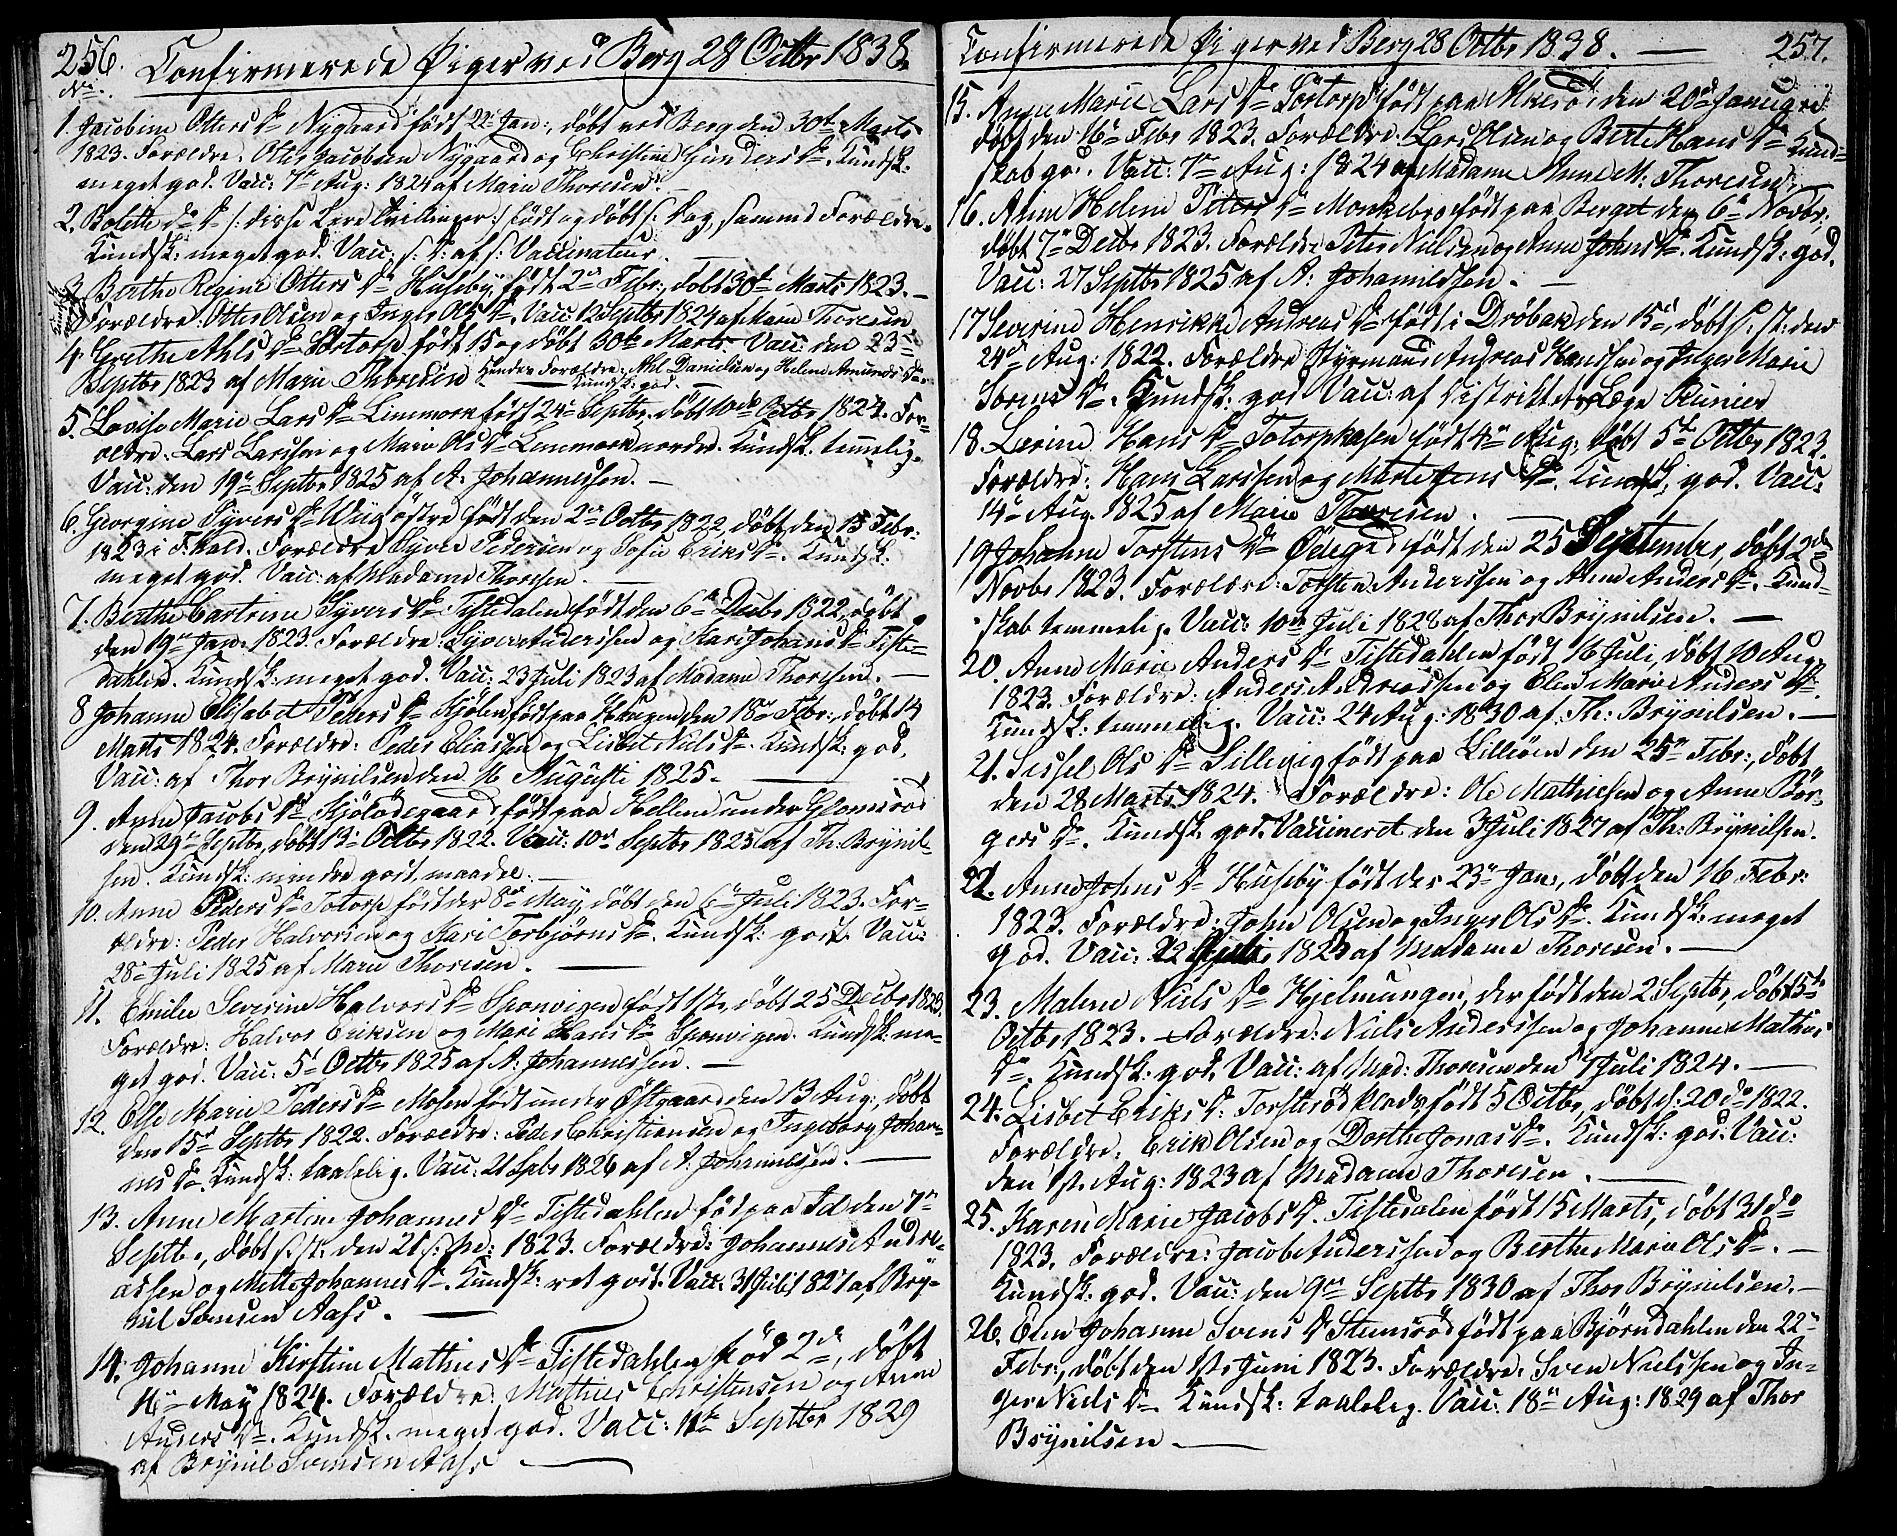 256. Confirmerede Piger ved Berg 28 Octbr 1838.
No.
1. Jacobine Otters Dr Nygaard født 22 Jan:, døbt ved Berg den 30te Marts
1823. Forældre. Otter Jacobsen Nygaard og Christine Gunders Dr. Kundsk:
meget god. Vacc: 7de Aug: 1824 af Marie Thoresen.
2. Bolette do Dr /: disse ere Tvillinger :/ født og døbt s: Dag, samme Forældre.
Kundsk: meget god. Vacc: s: D: af s: Vaccinateur.
3. Berthe Regine Otters Dr Huseby født 2den Febr:, døbt 30te Marts 1823. —
Forældre: Otter Olsen og Inger Ols Dr. Vacc: 12 Septbr 1824 af Marie Thoresen
4. Grethe Ahls Dr Sørtorp født 15 og døbt 30te Marts. Vacc: den 23de
Septbr 1823 af Marie Thoresen Hendes Forældre: Ahl Danielsen og Helene Amunds Dr
Kundsk: god.
5. Lovise Marie Lars Dr Liumork født 24de Septbr, døbt 10de Octbr 1824. For-
ældre. Lars Larssen og Marie Ols Dr nordre. Kundsk. temmelig.
Vacc: den 19de Septbr 1825 af A. Johannessen. —
6. Georgine Syvers Dr Wiig østre født den 2den Octbr 1822, døbt den 15 Febr:
1823 i F:hald. Forældre Syver Pedersen og Sofie Eriks Dr. Kundsk:
meget god. Vacc: af Madame Thoresen. —
7. Berthe Cartrine Syvers Dr Tistedalen født den 6te Decbr 1822, døbt
den 19de Jan: 1823. Forældre: Syver Anderssen og Kari Johans Dr Tiste-
dahlen. Kundsk: meget god. Vacc: 23 Juli 1823 af Madame Thoresen. —
8 Johanne Elisabet Peders Dr Kjølen født paa Haugen den 18de Febr:, døbt 14
Marts 1824. Forældre: Peder Eliassen og Lisbet Niels Dr. Kundsk: god.
Vacc: af Thor Brynilsen den 16 Augusti 1825. —
9. Anne Jacobs Dr Kjølødegaard født paa Hellen under Glomsrød
den 29de Septbr, døbt 13de Octbr 1822. Vacc: 10de Septbr 1825 af Th: Brynil-
sen. Kundsk: mindre godt, maadel: —
10. Anne Peders Dr Totorp født den 8de May, døbt den 6te Juli 1823. For-
ældre: Peder Halvorsen og Kari Torbjørns Dr. Kundsk: godt. Vacc:
28de Juli 1825 af Marie Thoresen. —
11. Emilie Severine Halvors Dr Sponvigen født 1ste, døbt 25 Decbr 1823.
Forældre: Halvor Eriksen og Mari Hans Dr Sponvigen. Kundsk: me-
get god. Vacc: 5te Octbr 1825 af A: Johannessen. —
12. Else Marie Peders Dr Mosen født under Østgaard den 13 Aug:, døbt
den 15de Septbr 1822. Forældre: Peder Christiansen og Ingeborg Johan-
nes Dr. Kundsk: taalelig. Vacc: 21 Sebr 1826 af A: Johannessen. —
13. Anne Martine Johannes Dr Tistedahlen fød paa Id den 7de
Septbr, døbt s: St: den 21 s: M: 1823. Forældre: Johannes Andre-
assen og Mette Johannes Dr. Kundsk: ret godt. Vacc: 31 Juli 1827 af Bry-
nil Svensen Aass. —
14. Johanne Kirstine Mathies Dr Tistedahlen fød 2den, døbt
16de May 1824. Forældre: Mathies Christensen og Anne
Anders Dr. Kundsk. meget god. Vacc: 11te Septbr 1829
af Brynil Svensen Aass —
Confirmerede Piger ved Berg 28 Octbr 1838. — 257.
15. Anne Marie Lars Dr Sørtorp født paa Akerø den 20de Januar
døbt den 16de Febr 1823. Forældre: Lars Olsen og Berte Hans Dr. Kund-
skab god. Vacc: 7de Aug: 1824 af Madame Anne M: Thoresen.
16. Anne Helene Peters Dr Monkebro født paa Berget den 6te Novbr,
døbt 7de Decbr 1823. Forældre Peter Nielsen og Anne Johns Dr. Kundsk: god.
Vacc: 27 Septbr 1825 af A: Johannessen. —
17 Severine Henrikke Andreas Dr født i Drøbak den 15de, døbt s. St: den
24de Aug: 1822. Forældre Styrmand Andreas Hanssen og Inger Marie
Sørens Dr. Kundsk: god Vacc: af Distrikts Læge
18. Lovine Hans Dr Totorpkasen født 4de Aug:, døbt 5te Octbr 1823.
Forældre: Hans Larssen og Marte Jens Dr. Kundsk: god. Vacc:
14de Aug. 1825 af Marie Thoresen. —
19 Johanne Torstens Dr Ødegrd født den 25 September, døbt 2de
Novbr 1823. Forældre: Torsten Anderssen og Anne Anders Dr. Kund-
skab temmelig. Vacc: 10de Juli 1828 af Thor Brynilsen. —
20. Anne Marie Anders Dr Tistedahlen født 16 Juli, døbt 10 Aug.
1823. Forældre: Anders Andreassen og Elen Marie Anders Dr.
Kundsk: temmelig. Vacc: 24 Aug: 1830 af Th: Brynilsen. —
21. Sissel Ols Dr Lillevig født paa Lilleøen den 25de Febr:, døbt
den 28 Marts 1824. Forældre: Ole Mathiesen og Anne Bør-
gers Dr. Kundsk: god. Vaccineret den 3 Juli 1827 af Th: Brynilsen.
22. Anne Johns Dr Huseby født den 23de Jan:, døbt den 16 Febr:
1823. Forældre: John Olsen og Inger Ols Dr. Kundsk: meget
god. Vacc: 22 Juli 1823 af Madame Thoresen. —
23. Malene Niels Dr Hjelmungen, der født den 2 Septbr, døbt 5te
Octbr 1823. — Forældre: Niels Anderssen og Johanne Mathies
Dr. Kundsk: god. Vacc: af Mad: Thoresen den 7 Juli 1824. —
24. Lisbet Eriks Dr. Torstrød født 5 Octbr, døbt d. 20 do 1822.
Forældre: Erik Olsen og Dorthe Jonas Dr. Kundsk: god. Vacc:
den 1st. Aug: 1823 af Madame Thoresen. —
25. Karen Marie Jacobs Dr. Tistedalen født 15 Marts, døbt 31 do
1823. Forældre: Jacob Anderssen og Berthe Marie Ols Dr. —
Kundsk: god. Vacc: den 9de Septbr 1830 af Thor Brynilsen. —
26. Elen Johanne Svens Dr Steensrød født paa Bjørndahlen den 22de
Febr:, døbt den 1ste Juni 1823. Forældre: Sven Nielssen og In-
ger Niels Dr. Kundsk: taalelig. Vacc: 18de Aug: 1829 af Thor
Brynilsen. —